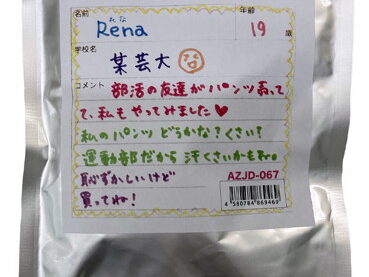 名前
れな
Rena
年齢
19 歳
学校名
某芸大 な
コメント
部活の友達がパンツ売って
て、私もやってみました♥
私のパンツどうかな?くさい?
運動部だから汗くさいかもね。
恥ずかしいけど
買ってね!
AZJD-067
4580784869469